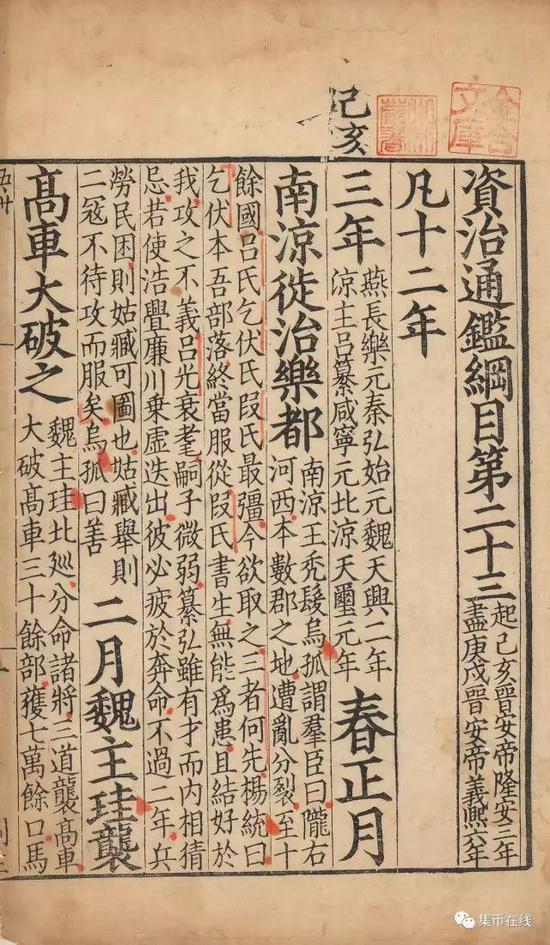 己亥
資治通鑑綱目第二十三
起己亥晉安帝隆安三年
盡庚戌晉安帝義熙六年
凡十二年
三年
燕長樂元秦弘始元魏天興二年
涼王呂纂咸寧元北涼天璽元年
春正月
南涼徙治樂都
南涼王禿髮烏孤謂羣臣曰隴右
河西本數郡之地遭亂分裂至十
餘國呂氏乞伏氏段氏最彊今欲取之三者何先楊統曰
乞伏本吾部落終當服從段氏書生無能爲患且結好於
我攻之不義呂光衰耄嗣子微弱纂弘雖有才而内相猜
忌若使浩亹廉川乘虛迭出彼必疲於奔命不過二年兵
勞民困則姑臧可圖也姑臧舉則
二寇不待攻而服矣烏孤曰善
二月魏主珪襲
髙車大破之
魏主珪北廵分命諸將三道襲髙車
大破髙車三十餘部獲七萬餘口馬
集币在线